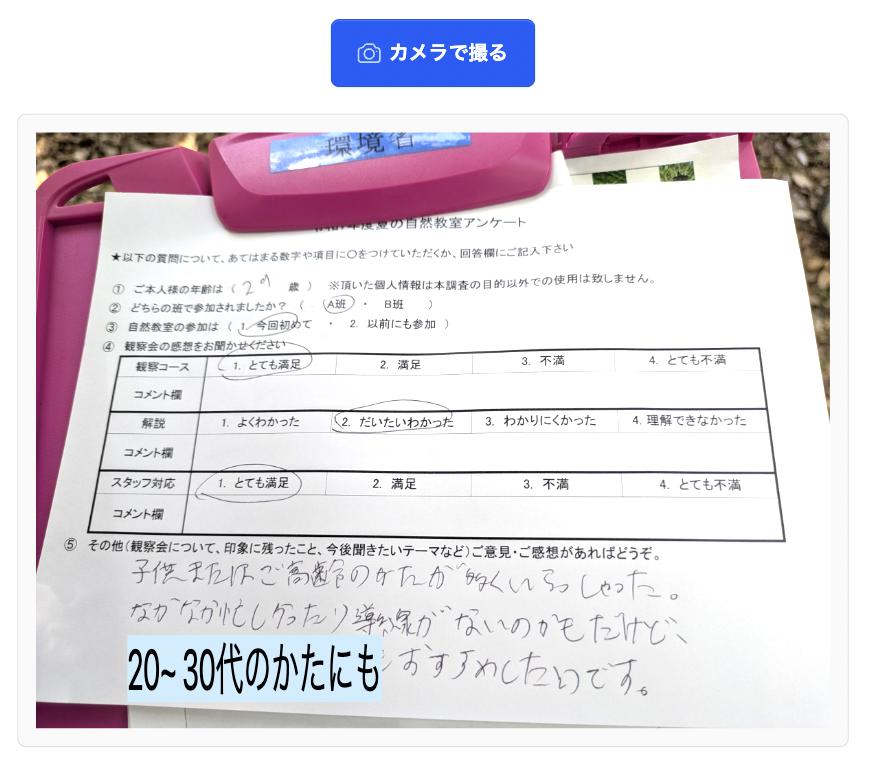 カメラで撮る
環境省
年度夏の自然教室アンケート
★以下の質問について、あてはまる数字や項目に〇をつけていただくか、回答欄にご記入下さい
① ご本人様の年齢は（ 29 歳 ） ※頂いた個人情報は本調査の目的以外での使用は致しません。
② どちらの班で参加されましたか？（ A班 ・ B班 ）
③ 自然教室の参加は（ 1. 今回初めて ・ 2. 以前にも参加 ）
④ 観察会の感想をお聞かせください
観察コース 1. とても満足 2. 満足 3. 不満 4. とても不満
コメント欄
解説 1. よくわかった 2. だいたいわかった 3. わかりにくかった 4. 理解できなかった
コメント欄
スタッフ対応 1. とても満足 2. 満足 3. 不満 4. とても不満
コメント欄
⑤ その他（観察会について、印象に残ったこと、今後聞きたいテーマなど）ご意見・ご感想があればどうぞ。
子供またはご高齢のかたが多くいらっしゃった。
なかなか忙しかったり導線がないのかもだけど、
20~30代のかたにも おすすめしたいです。